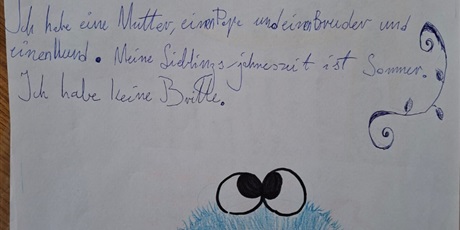 Ich habe eine Mutter, einen Pepe und einen Bruder und
einen Hund. Meine Lieblingsjahreszeit ist Sommer.
Ich habe keine Brille.